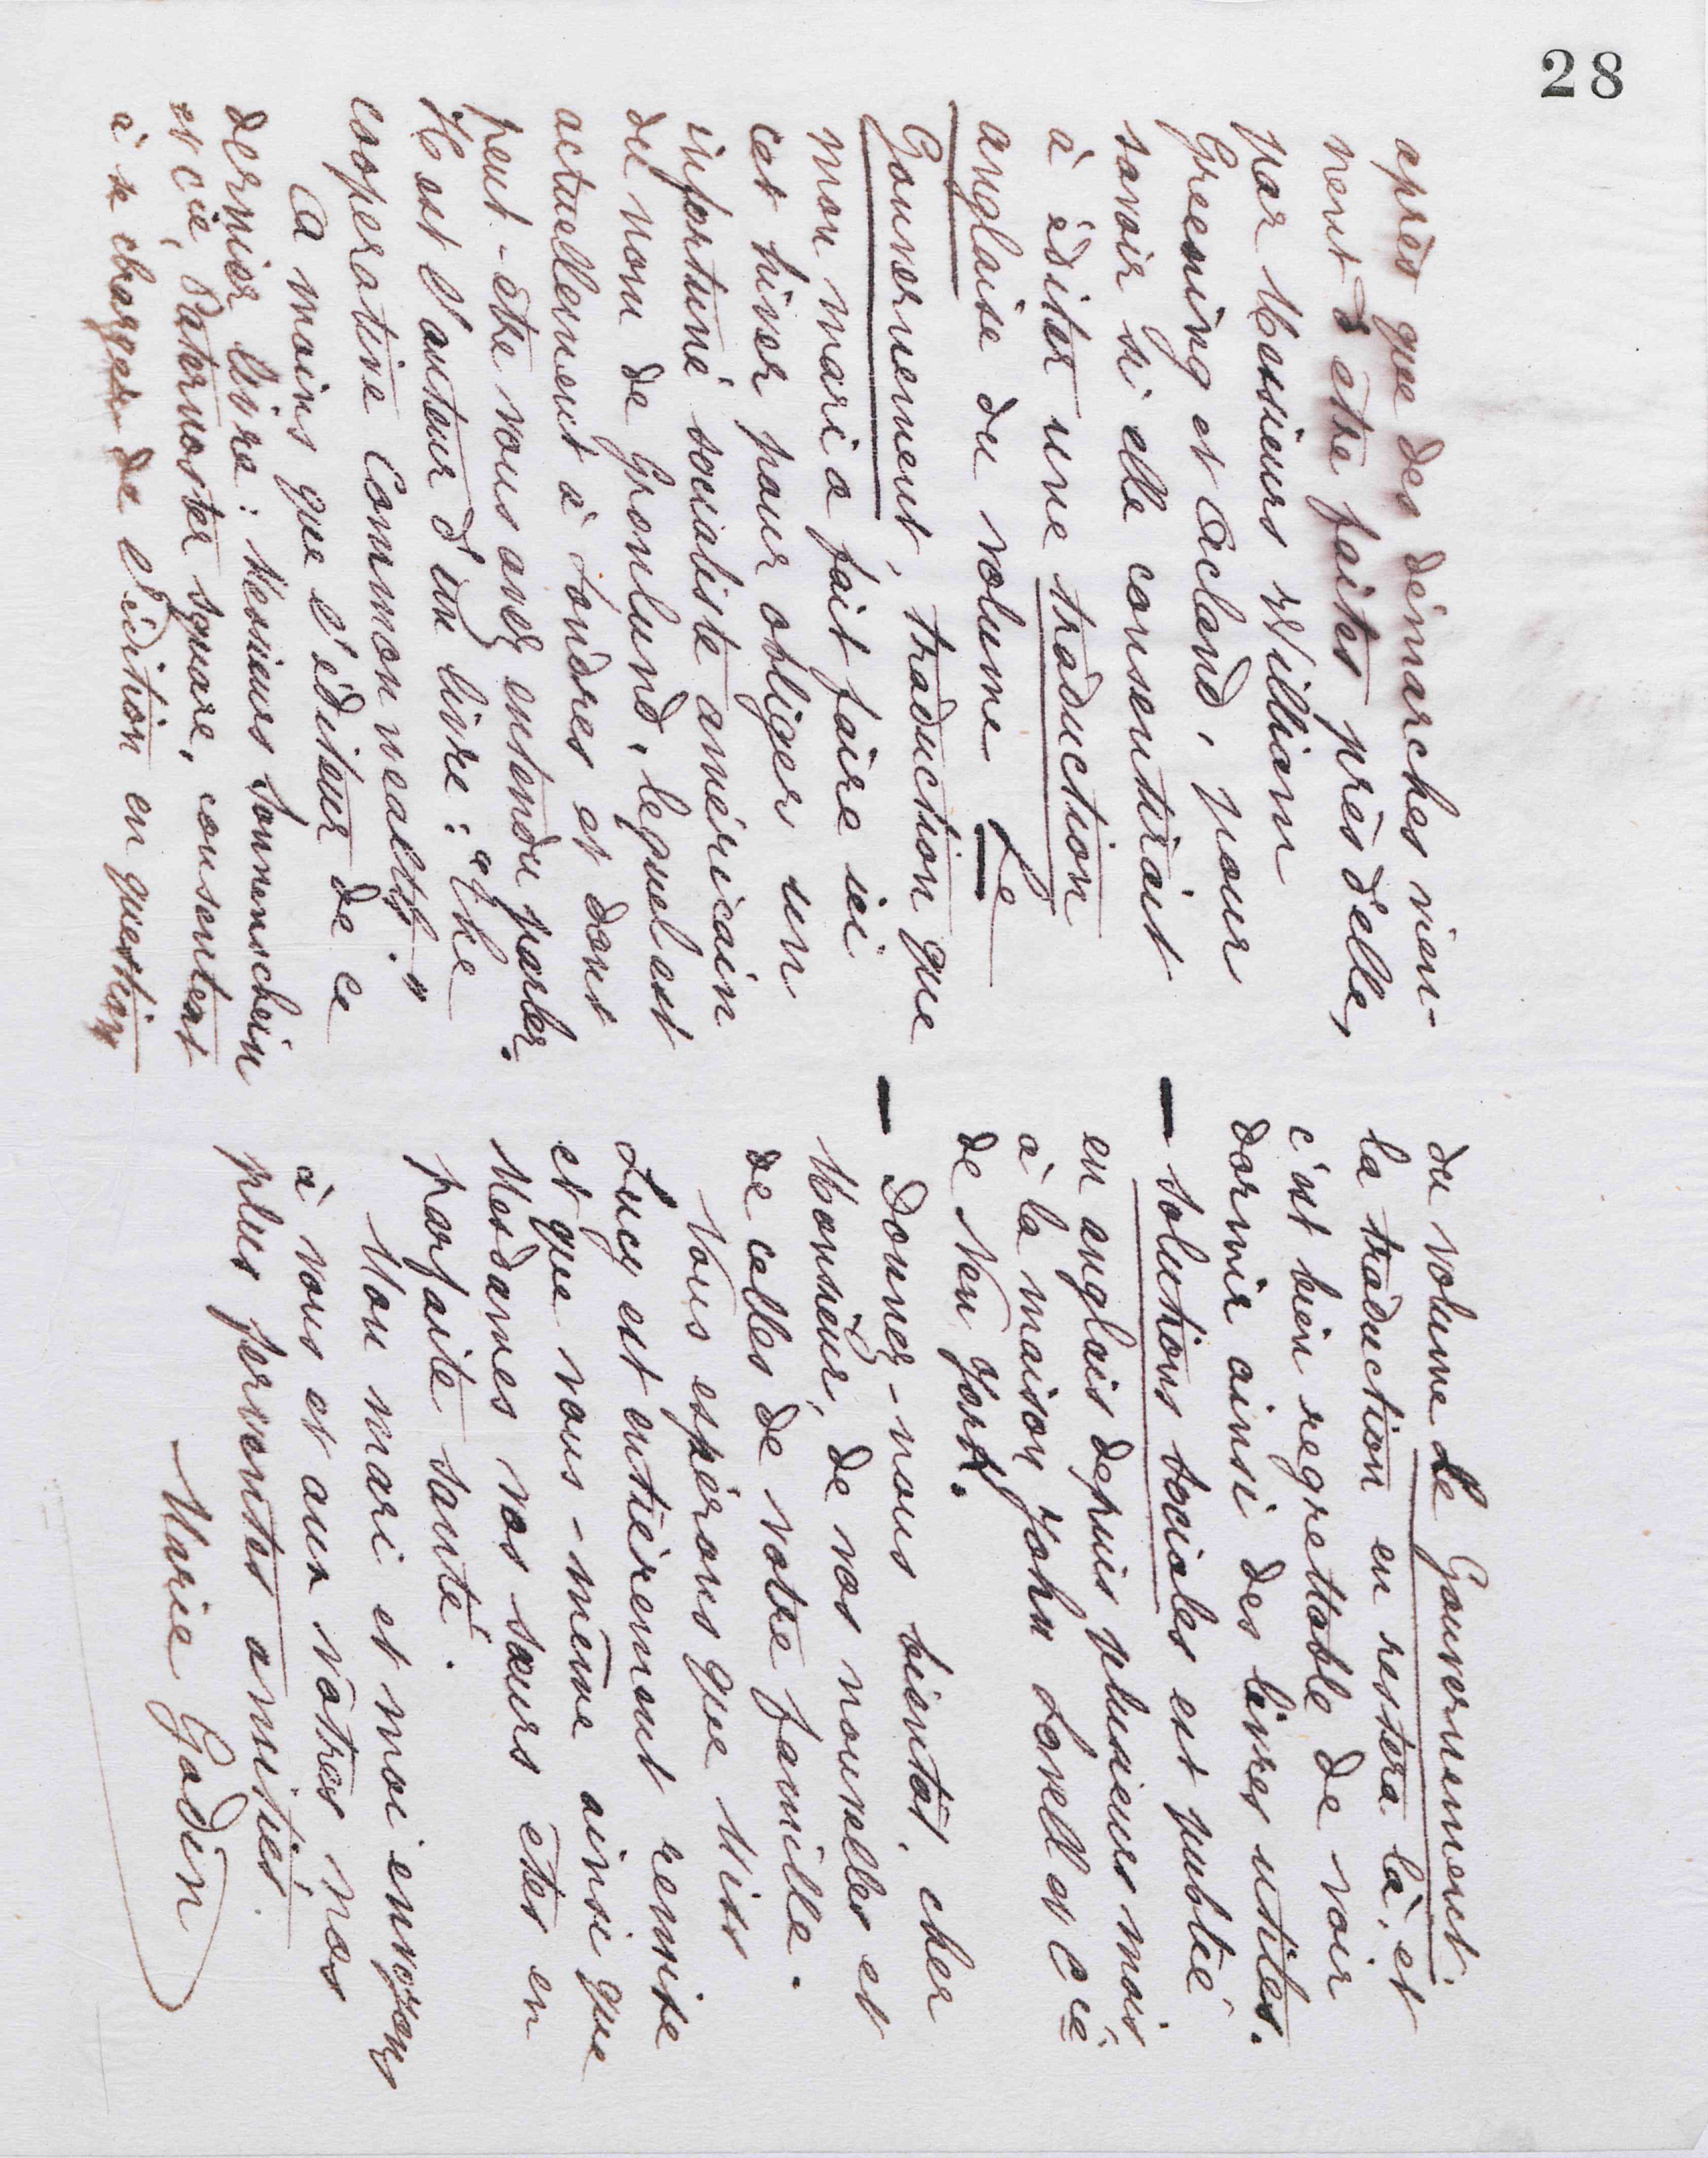 28
après que des démarches vien-
nent d'être faites près d'elle,
par Messieurs William
Greening et Acland, pour
savoir si elle consentirait
à éditer une traduction
anglaise du volume Le
Gouvernement, traduction que
mon mari a fait faire ici
cet hiver pour obliger un
infortuné socialiste américain
du nom de Gronlund, lequel est
actuellement à Londres et dont
peut-être vous avez entendu parler.
Il est l'auteur d'un livre: "The
cooperative Commonwealth."
A moins que l'éditeur de ce
dernier livre: Messieurs Sonnenschein
et Cie, Paternoster square, consentent
à se charger de l'édition en question
du volume Le Gouvernement,
la traduction en restera là, et
c'est bien regrettable de voir
dormir ainsi des livres utiles.
— Solutions sociales est publié
en anglais depuis plusieurs mois,
à la maison John Lovell et Cie
de New York.
— Donnez-nous bientôt, cher
Monsieur, de vos nouvelles et
de celles de votre famille.
Nous espérons que Miss
Lucy est entièrement remise
et que vous-même ainsi que
Mesdames vos sœurs êtes en
parfaite santé.
Mon mari et moi envoyons
à vous et aux vôtres nos
plus ferventes amitiés.
Marie Godin